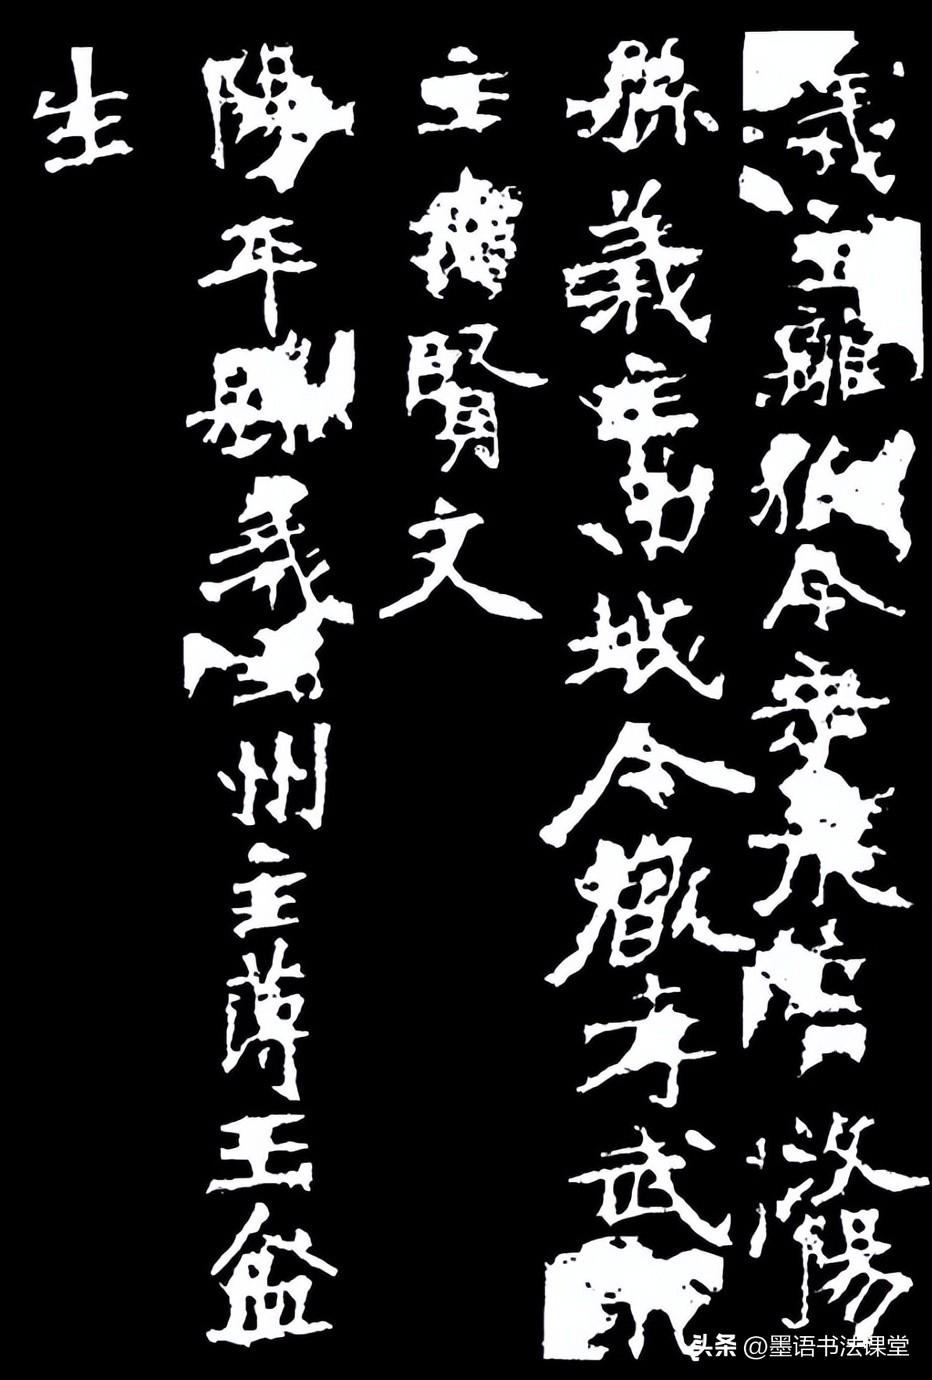 義主離狐令 汶陽
縣義主南城令嚴孝武
主 賢文
陽平縣義主州主簿王盆
生
头条 @墨语书法课堂